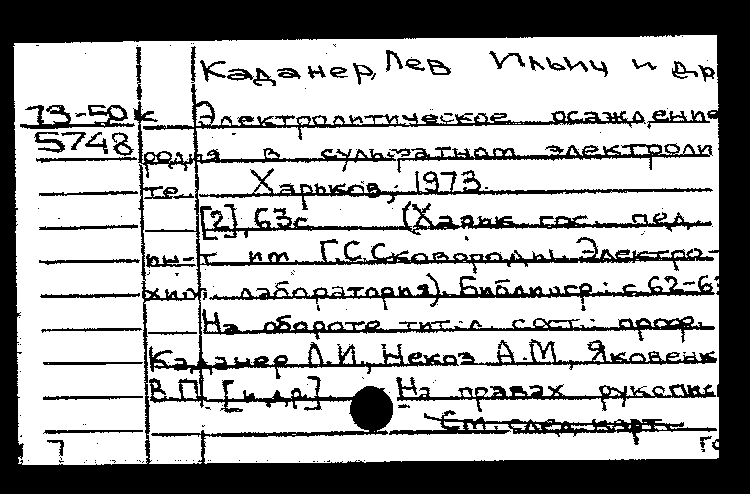 Каданер, Лев Ильич и др
73-50к Электролитическое осаждение
5748 родия в сульфатном электроли
те. Харьков, 1973.
[2], 63с (Харьк. гос. пед.
ин-т им. Г.С.Сковороды. Электро-
хим. лаборатория). Библиогр.: с. 62-63
На обороте тит. л. сост.: проф.
Каданер Л.И., Некоз А.М., Яковенк
В.П. [и др.] На правах рукопис
См. след. карт.
7